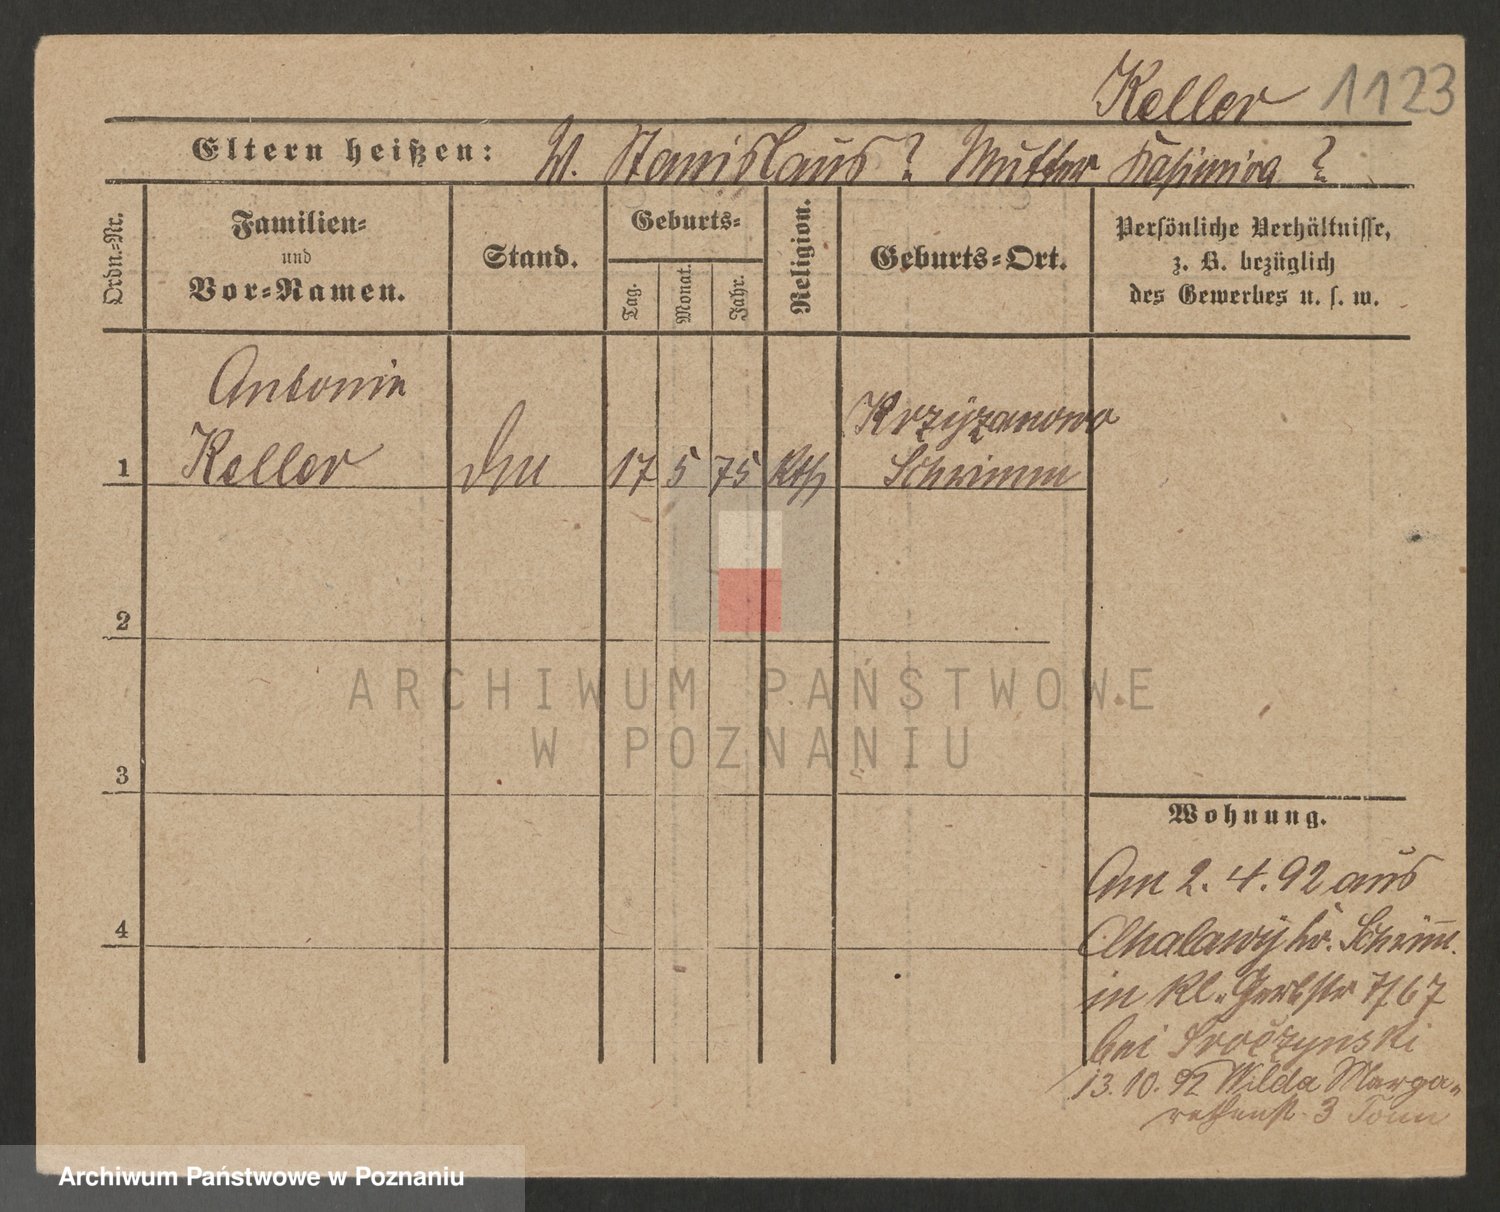 Keller 1123
Eltern heißen: V. Stanislaus ? Mutter Kasimira ?
Ordn.-Nr.
Familien-
und
Vor-Namen.
Stand.
Geburts-
Tag.
Monat.
Jahr.
Religion.
Geburts-Ort.
Persönliche Verhältnisse,
z. B. bezüglich
des Gewerbes u. s. w.
Antonie
Krzyzanowo
1 Keller 17 5 75 Kth Schrimm
2
3
4
Wohnung.
Am 2. 4. 92 aus
Chalawy Kr. Schrimm
in Kl. Gerbstr 7/67
bei Sroczynski
13. 10. 92 Wilda Marga-
rethenst. 3
ARCHIWUM PAŃSTWOWE
W POZNANIU
Archiwum Państwowe w Poznaniu